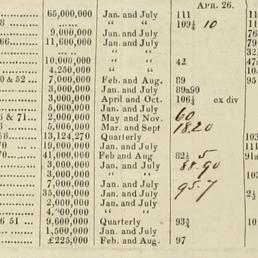 APR. 26.
65,000,000 Jan. and July 111
8 " " 109¼ 10
9,000,000 Jan. and July
66 11,600,000 Jan. and July
" "
10,000,000 " " 42
4,250,000 " "
0 & 52 7,000,000 Feb. and Aug. 89
3,000,000 Jan. and July 89a90
3,000,000 April and Oct. 106¼ ex div
6 & 71 2,000,000 May and Nov. 60
8 5,000,000 Mar. and Sept 18.20
58 13,124,270 Quarterly
70 19,000,000 Jan. and July
70 41,000,000 Feb and Aug 82½ 5
3,000,000 Jan. and July 88.90
7,000,000 Jan. and July 95.7
35,000,000 Jan. and July
2,000,000 Jan. and July
4, 00,000 " "
6 51 9,600,000 Quarterly 93¾
1,500,000 Jan. and July
£225,000 Feb. and Aug. 97